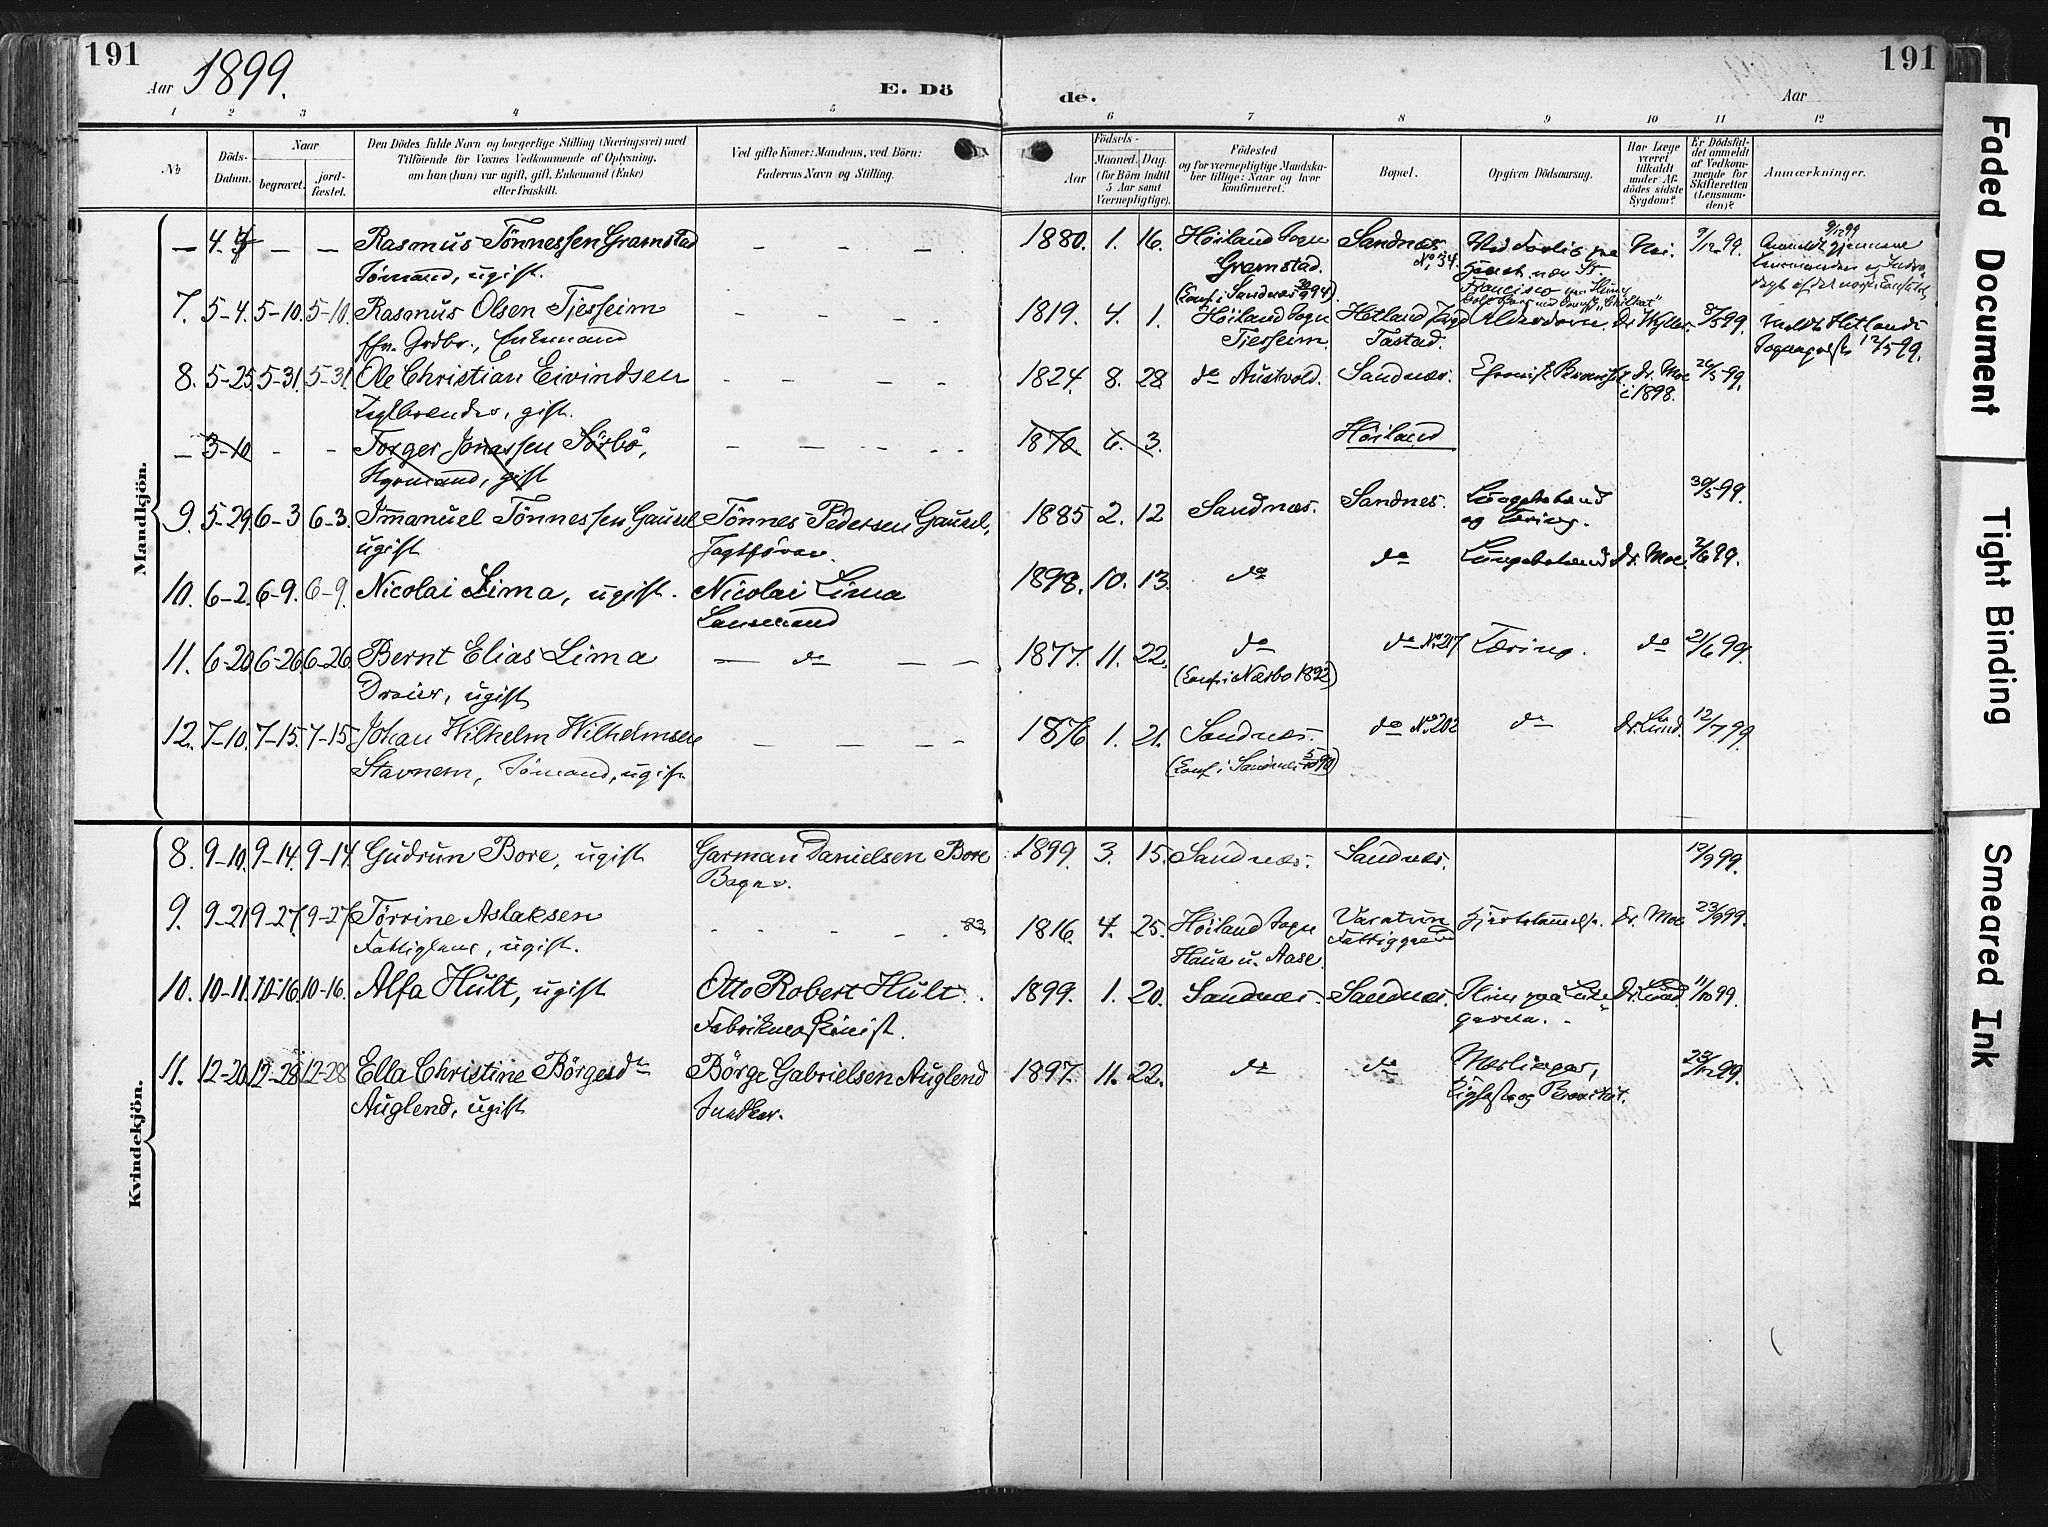 191
Aar 1899.
E. Dö
de.
Aar
191
1 2 3 4 5 6 7 8 9 10 11 12
No
Döds-
Datum.
Naar
begravet.
jord-
fæstet.
Den Dödes fulde Navn og borgerlige Stilling (Næringsvei) med
Tilföiende for Voxnes Vedkommende af Oplysning,
om han (hun) var ugift, gift, Enkemand (Enke)
eller fraskilt.
Ved gifte Koner: Mandens, ved Börn:
Faderens Navn og Stilling.
Födsels-
Aar
Maaned. Dag.
(for Börn indtil
5 Aar samt
Værnepligtige).
Födested
og for værnepligtige Mandska-
ber tillige: Naar og hvor
konfirmeret.
Bopæl.
Opgiven Dödsaarsag.
Har Læge
været
tilkaldt
under Af-
dödes sidste
Sygdom?
Er Dödsfal-
det anmeldt
af Vedkom-
mende for
Skifteretten
(Lensman-
den)?
Anmærkninger.
Mandkjön.
— 4. — — Rasmus Tönnessen Gramstad — — — — 1880. 1. 16. Höiland Sogn Sandnes Ved Forlis Nei. 9/12 99.
Sömand, ugift. Gramstad. No 34.
(Conf. i Sandnæs 94)
Francisco
7. 5-4. 5-10. 5-10. Rasmus Olsen Tjessem - - - - 1819. 4. 1. Höiland Sogn Hetland Alderdom. Dr. 8/5 99. Meldt Hetlands
fhv. Grdbr., Enkemand Tastad. 12/5 99.
8. 5-25 5-31. 5-31. Ole Christian Eivindsen - - - - 1824. 8. 28 do Austvold. Sandnæs. Chronisk Dr. Moe 26/5 99.
Teglbrænder, gift. i 1898.
— 3-10 - - Torger Jonassen Sörbö, - - - - 1870 6. 3. Höiland
Styrmand, gift
9. 5-29. 6-3 6-3. Immanuel Tönnessen Gausel Tönnes Pedersen Gausel, 1885 2. 12 Sandnæs. Sandnes. 30/5 99.
ugift og Tæring.
10. 6-2. 6-9. 6-9. Nicolai Lima, ugift. Nicolai Lima 1898. 10. 13. do do Dr. Moe 2/6 99.
11. 6-20. 6-26 6-26 Bernt Elias Lima — do — — 1877. 11. 22. do do No 217 Tæring. do 21/6 99.
Dreier, ugift (Conf. i Nærbo 1892)
12. 7-10. 7-15. 7-15 Johan Wilhelm Wilhelmsen — — — — 1876 1. 21. Sandnæs. do No 202 do Dr. Lund. 12/7 99
Stavnem, Sömand, ugift (Conf. i Sandnæs 5/10 90)
Kvindekjön.
8. 9-10. 9-14. 9-14. Gudrun Bore, ugift Garman Danielsen Bore 1899. 3. 15. Sandnæs. Sandnæs. 99.
Bager.
9. 9-21. 9-27. 9-27 Törrine Aslaksen - - - - 83 1816. 4. 25. Höiland Sogn Vatn Dr. Moe 23/9 99.
Fattiglem, ugift. Hana u. Aase. Fattiggaard
10. 10-11. 10-16. 10-16. Alfa Hult, ugift Otto Robert Hult. 1899. 1. 20. Sandnæs. Sandnæs. Dr. Lund. 11/10 99.
Fabrikmaskinist.
11. 12-20. 12-28 12-28 Ella Christine Börgesdtr Börge Gabrielsen Auglend 1897. 11. 22. do do Mæslinger, 23/12 99.
Auglend, ugift Snedker. Kighoste og Bronchit.
Faded Document
Tight Binding
Smeared Ink